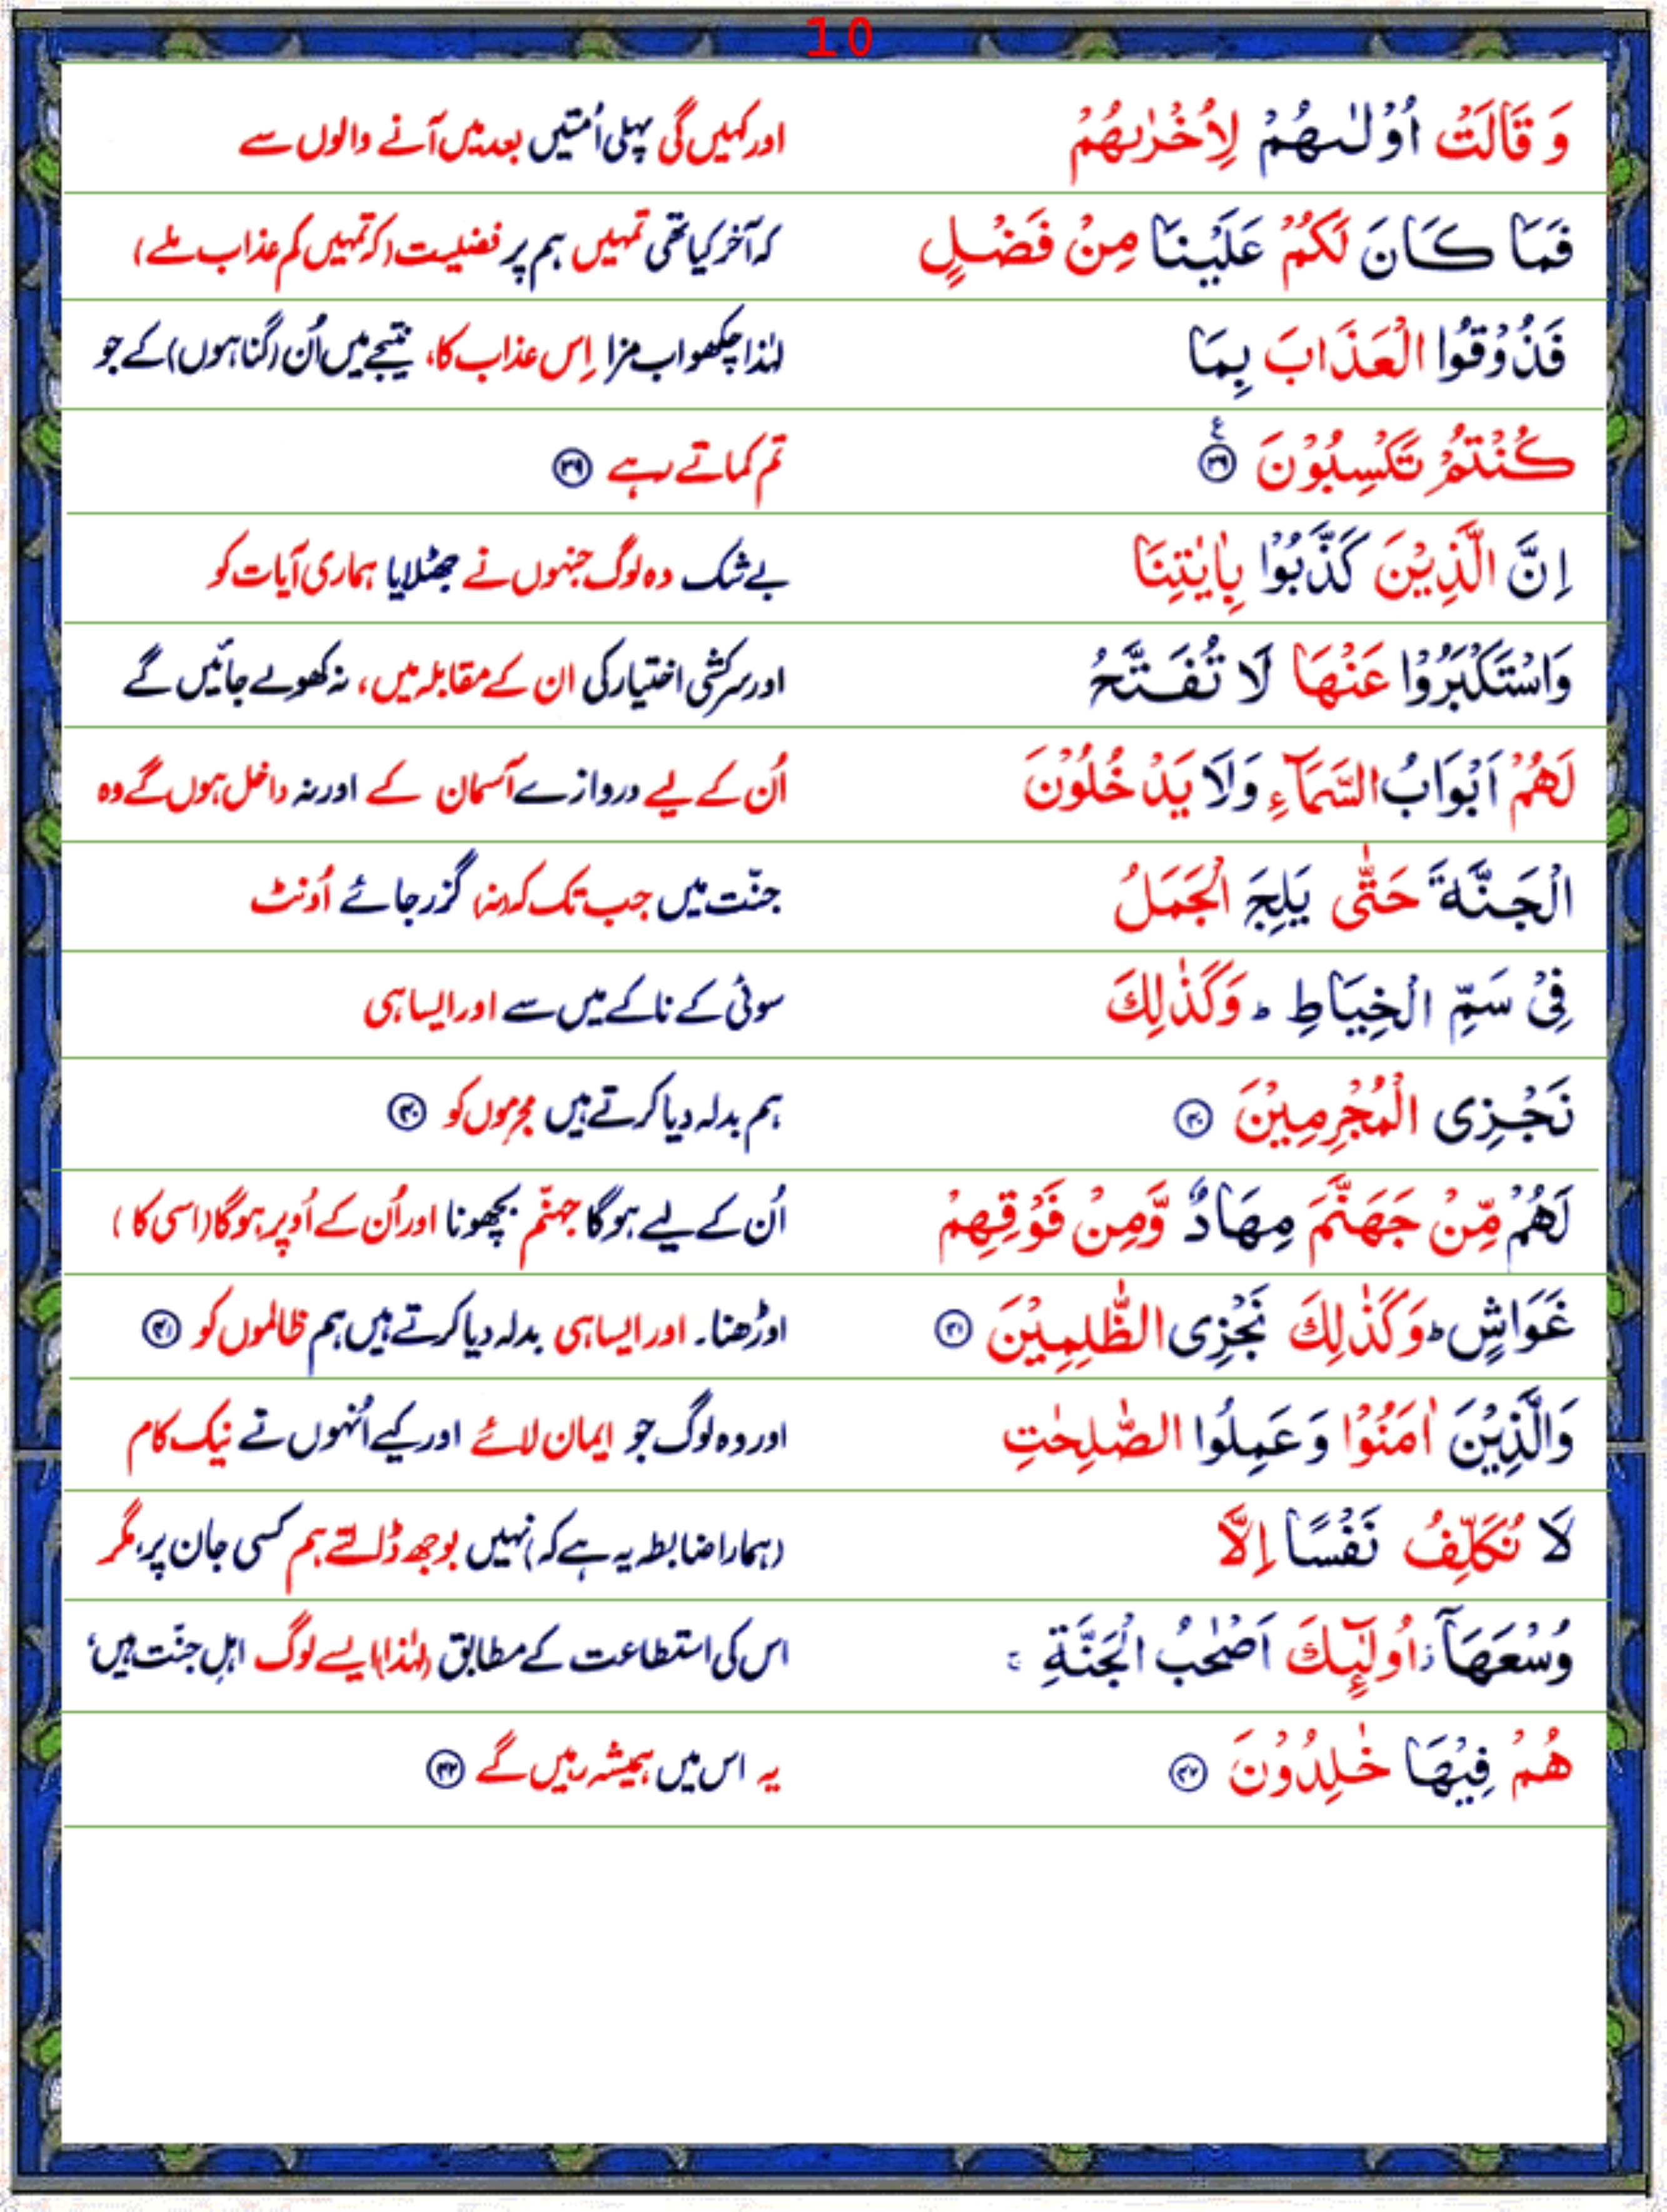 10
وَ قَالَتْ اُوْلٰىهُمْ لِاُخْرٰىهُمْ اور کہیں گی پہلی اُمتیں بعد میں آنے والوں سے
فَمَا كَانَ لَكُمْ عَلَيْنَا مِنْ فَضْلٍ کہ آخر کیا تھی تمہیں ہم پر فضلیت (کہ تمہیں کم عذاب ملے)
فَذُوْقُوا الْعَذَابَ بِمَا لہٰذا چکھو اب مزا اِس عذاب کا، نتیجے میں اُن (گناہوں) کے جو
كُنْتُمْ تَكْسِبُوْنَ ﴿۳۹﴾ۧ تم کماتے رہے ﴿۳۹﴾
اِنَّ الَّذِيْنَ كَذَّبُوْا بِاٰيٰتِنَا بے شک وہ لوگ جنہوں نے جھٹلایا ہماری آیات کو
وَاسْتَكْبَرُوْا عَنْهَا لَا تُفَتَّحُ اور سرکشی اختیار کی ان کے مقابلہ میں، نہ کھولے جائیں گے
لَهُمْ اَبْوَابُ السَّمَآءِ وَلَا يَدْخُلُوْنَ اُن کے لیے دروازے آسمان کے اور نہ داخل ہوں گے وہ
الْجَنَّةَ حَتّٰى يَلِجَ الْجَمَلُ جنّت میں جب تک کہ (نہ) گزر جائے اُونٹ
فِىْ سَمِّ الْخِيَاطِ ؕ وَكَذٰلِكَ سوئی کے ناکے میں سے اور ایسا ہی
نَجْزِى الْمُجْرِمِيْنَ ﴿۴۰﴾ ہم بدلہ دیا کرتے ہیں مجرموں کو ﴿۴۰﴾
لَهُمْ مِّنْ جَهَنَّمَ مِهَادٌ وَّمِنْ فَوْقِهِمْ اُن کے لیے ہوگا جہنّم بچھونا اور اُن کے اُوپر ہوگا (اسی کا )
غَوَاشٍ ؕ وَكَذٰلِكَ نَجْزِى الظّٰلِمِيْنَ ﴿۴۱﴾ اوڑھنا۔ اور ایسا ہی بدلہ دیا کرتے ہیں ہم ظالموں کو ﴿۴۱﴾
وَالَّذِيْنَ اٰمَنُوْا وَ عَمِلُوا الصّٰلِحٰتِ اور وہ لوگ جو ایمان لائے اور کیے اُنہوں نے نیک کام
لَا نُكَلِّفُ نَفْسًا اِلَّا (ہمارا ضابطہ یہ ہے کہ) نہیں بوجھ ڈالتے ہم کسی جان پر، مگر
وُسْعَهَاۤ ؗ اُولٰٓئِكَ اَصْحٰبُ الْجَنَّةِ ۚ اس کی استطاعت کے مطابق (لہٰذا) ایسے لوگ اہلِ جنّت ہیں،
هُمْ فِيْهَا خٰلِدُوْنَ ﴿۴۲﴾ یہ اس میں ہمیشہ رہیں گے ﴿۴۲﴾